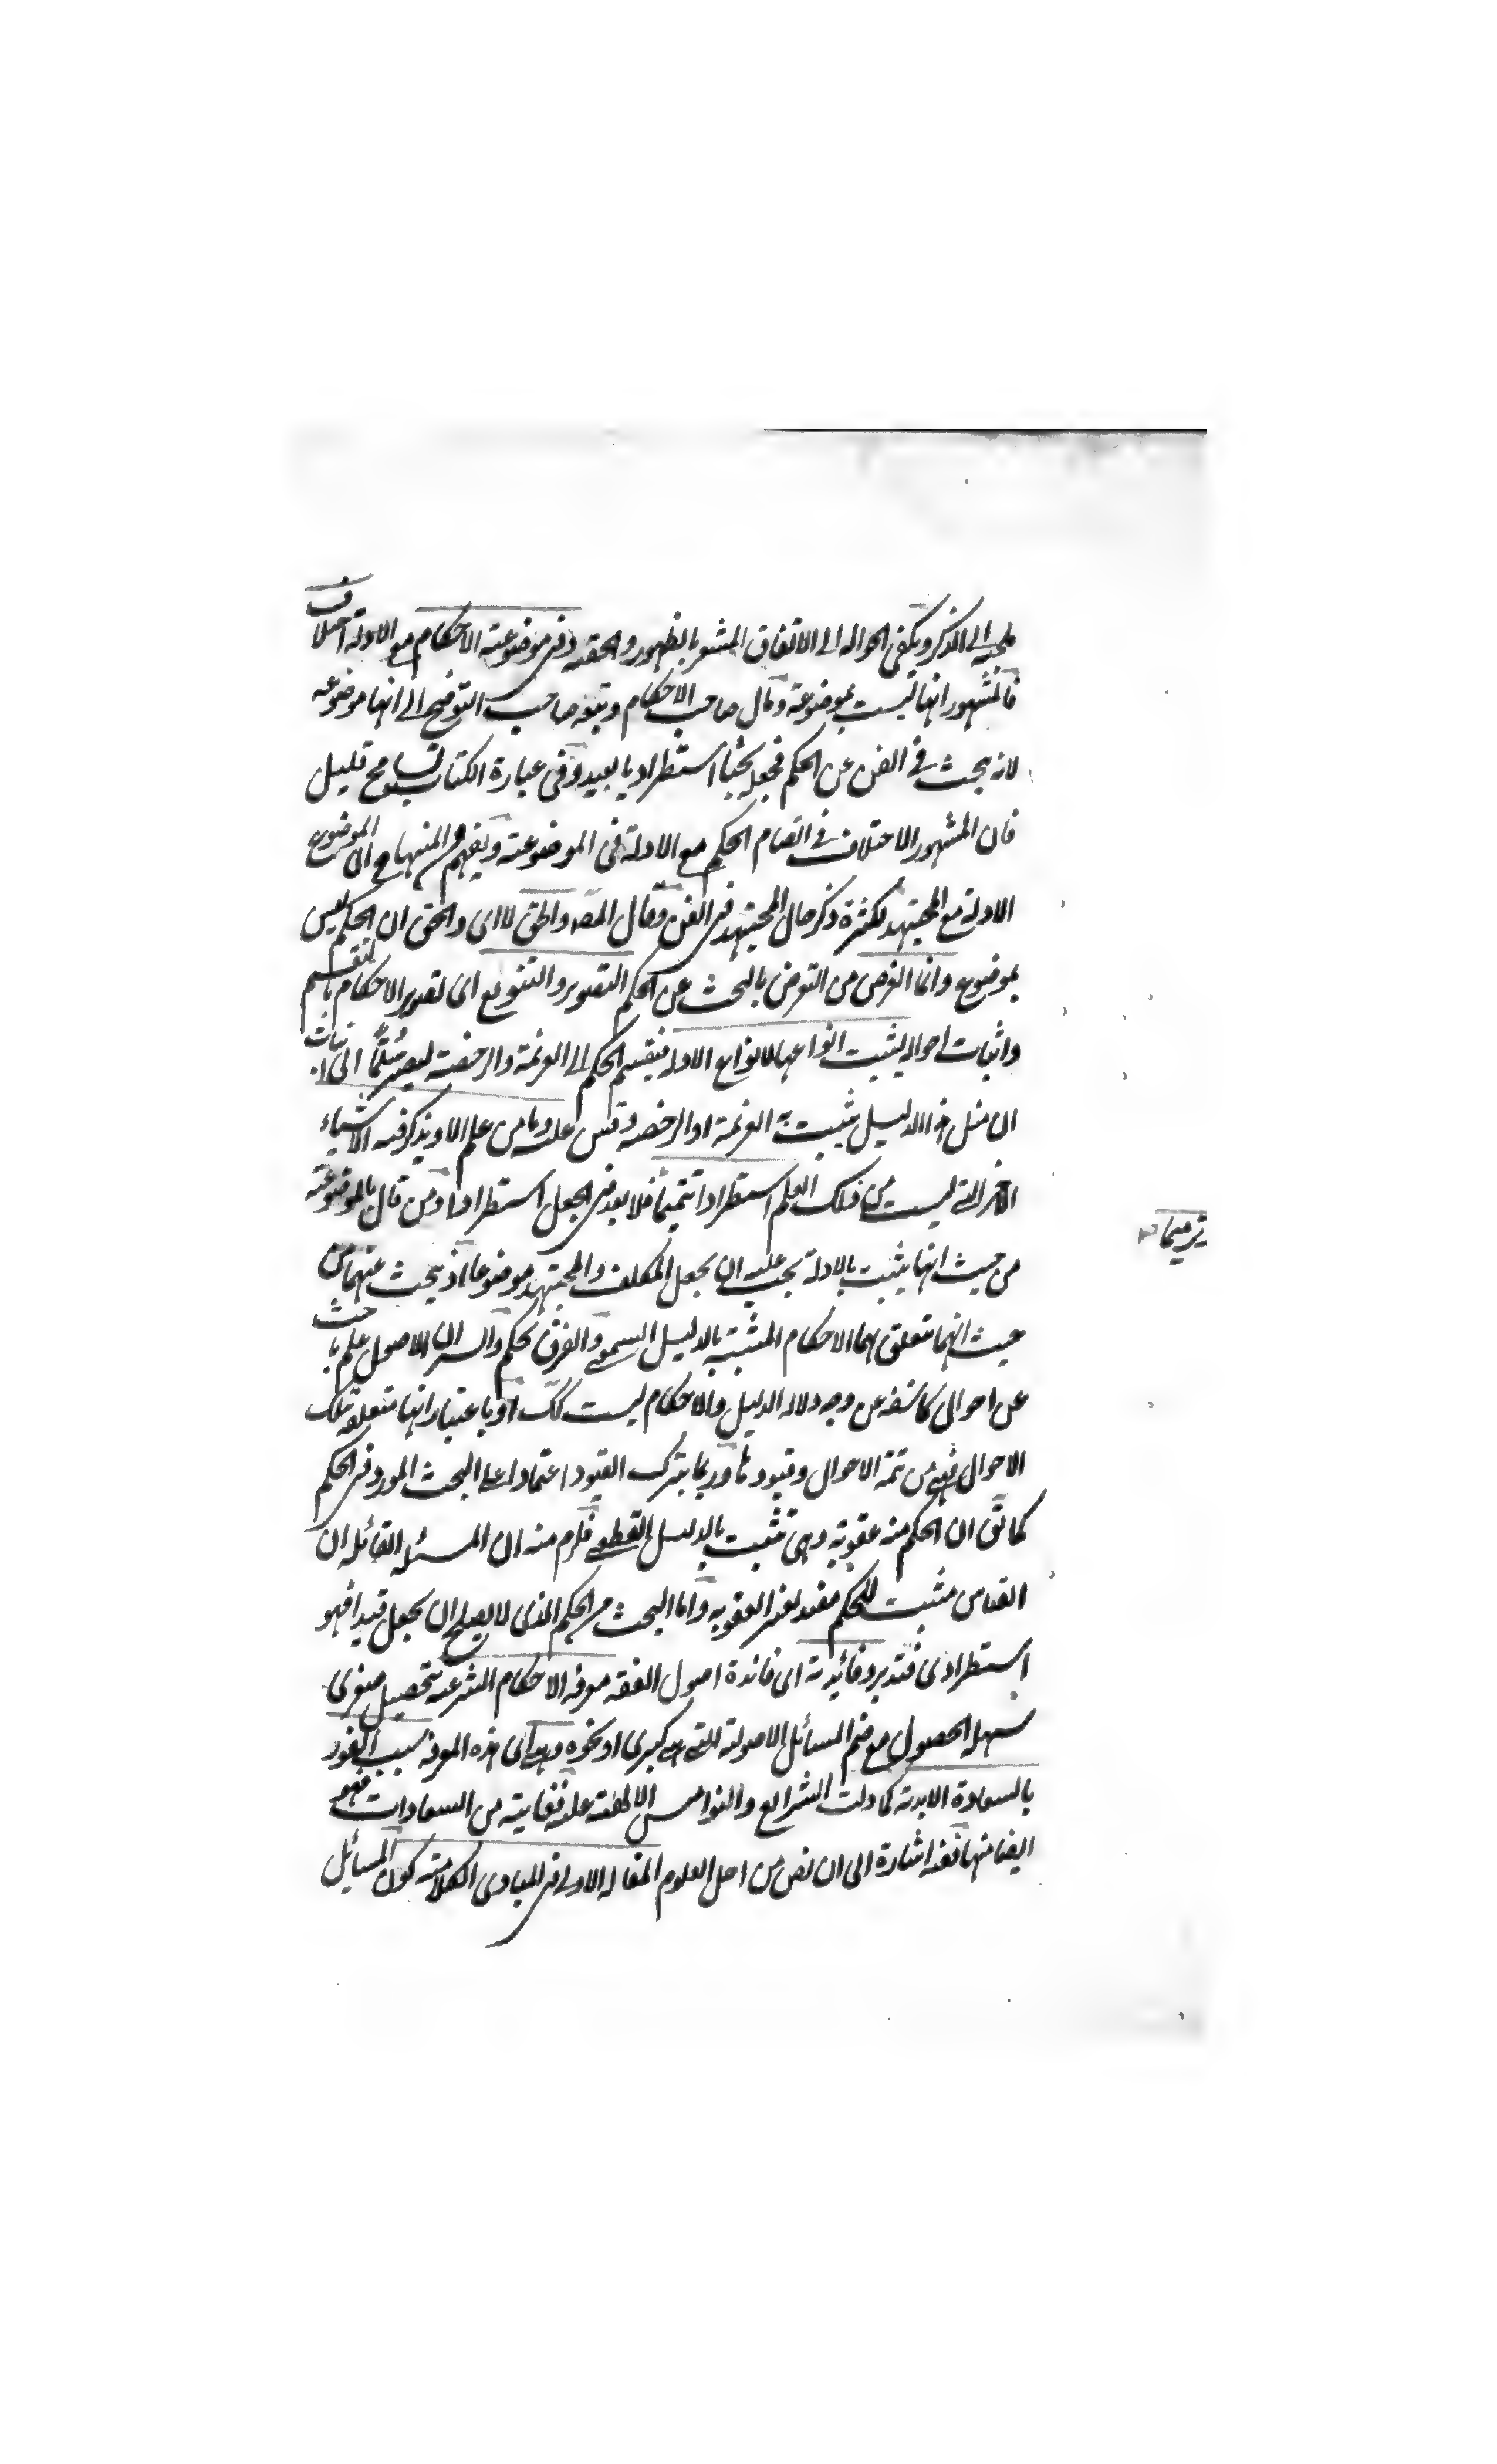 ملجية الى الذكر ويكفي الحواله الى الاتفاق المشعر بالظهور والحقيه وفي موضوعية الاحكام مع الادلة اختلاف
فالمشهور انها ليست بموضوعة ومال صاحب الاحكام وتبعه صاحب التوضيح الى انها موضوعه
لانه يبحث في الفن عن الحكم فجعله بحثا استطراديا بعيد وفي عبارة الكتاب تسامح قليل
فان المشهور الاختلاف في انضمام الحكم مع الادلة في الموضوعية ويفهم من المنهاج ان الموضوع
الادلة مع المجتهد لكثرة ذكر حال المجتهد في الفن وقال المصـ والحق لا اى والحق ان الحكم ليس
بموضوع وانما الغرض من التعرض بالبحث عن الحكم التصوير والتنويع اى تصوير الاحكام بالتقسيم
واثبات احواله ليثبت انواعها لانواع الادلة فينقسم الحكم الى العزيمة والرخصة ليصير سُلّمًا الى اثبات
ان مثل هذا الدليل يثبت به العزيمة او الرخصه وقس عليه وما من علم الا ويذكر فيه الاشياء
الاخر التي ليست من ذلك العلم استطرادا تتميما فلا بعد في الجعل استطرادا ومن قال بالموضوعية
من حيث انها يثبت بالادلة يجب عليه ان يجعل المكلف والمجتهد موضوعا اذ يبحث عنهما من
حيث انهما متعلق بهما الاحكام المثبتة بالدليل السمعي والفرق تحكم والسر ان الاصول علم باحث
عن احوال كاشفة عن وجه دلالة الدليل والاحكام ليست كك او باعتبار انها متعلقة بتلك
الاحوال فهي من تتمة الاحوال وقيودها وربما يترك القيود اعتمادا على البحث المورد في الحكم
كما تق ان الحكم منه عقوبة وهي تثبت بالدليل القطعي فلزم منه ان المسئلة القائلة ان
القياس مثبت للحكم مقيد لغير العقوبه واما البحث من الحكم الذي لا يصلح ان يجعل قيدا فهو
استطرادى فتدبر وفائدته اى فائدة اصول الفقه معرفة الاحكام الشرعية بتحصيل صغرى
سهلة الحصول مع ضم المسائل الاصولية التي هي كبرى او نحوه وهي اى هذه المعرفة سبب الفوز
بالسعادة الابدية كما دلت الشرايع والنواميس الالهية عليه فغايته من السعادات فهو
ايضا منها ففيه اشارة الى ان نص من اجل العلوم المقالة الاولى في المبادى الكلامية كون المسائل